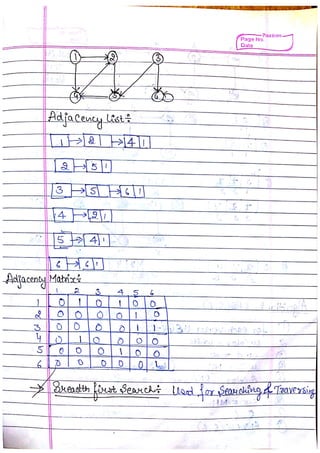 Page No.
Date
1 2 3
4 5 6
Adjacency List:
1 → 2 → 4
2 → 5
3 → 5 → 6
4 → 2
5 → 4
6 → 6
Adjacency Matrix:
1 2 3 4 5 6
1 0 1 0 1 0 0
2 0 0 0 0 1 0
3 0 0 0 0 1 1
4 0 1 0 0 0 0
5 0 0 0 1 0 0
6 0 0 0 0 0 1
→ Breadth first Search: Used for Searching & Traversing